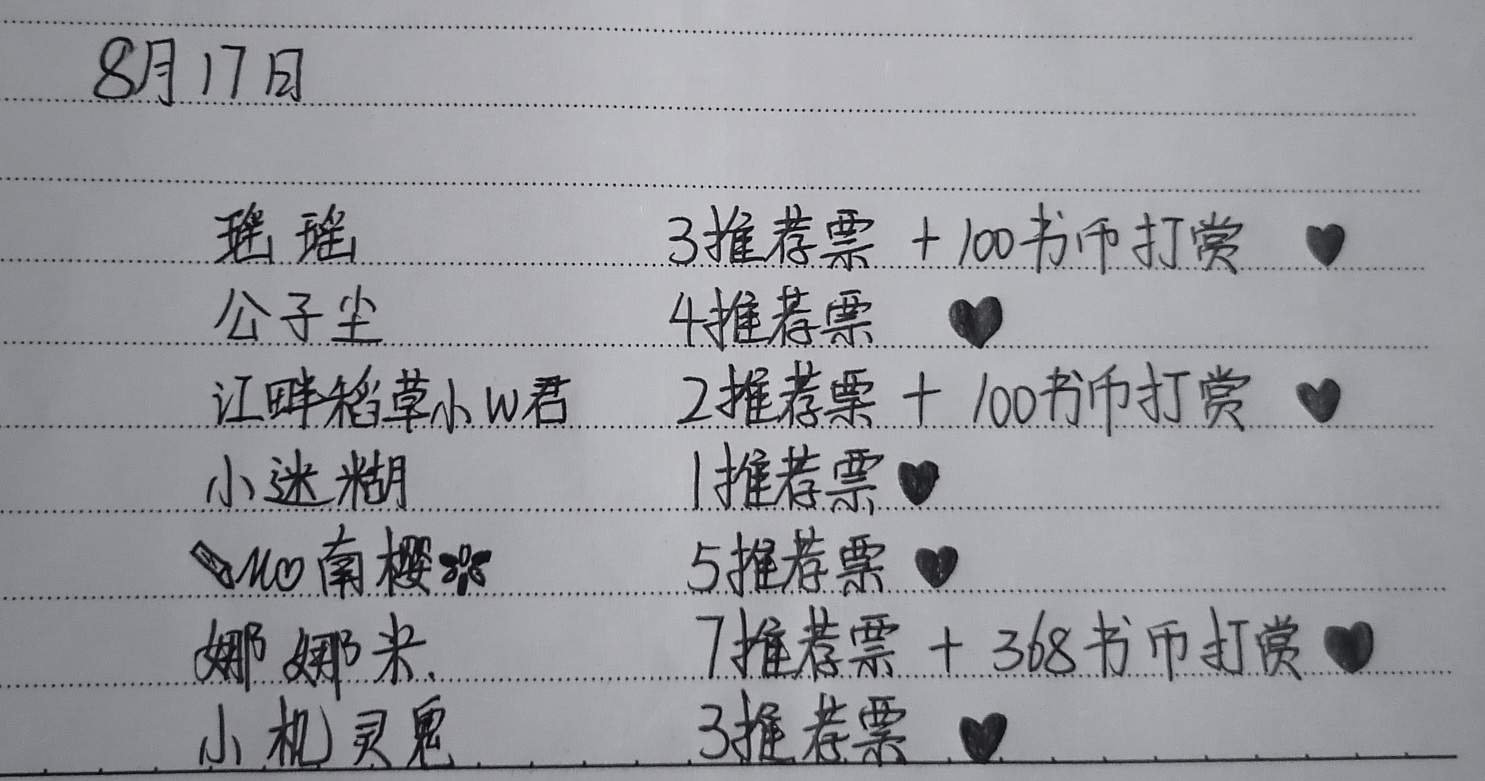 8月17日
瑶瑶 3推荐票 + 100书币打赏 ♥
公子尘 4推荐票 ♥
江畔稻草小W君 2推荐票 + 100书币打赏 ♥
小迷糊 1推荐票 ♥
✎Mo南樱❀ 5推荐票 ♥
娜娜米. 7推荐票 + 368书币打赏 ♥
小机灵鬼 3推荐票 ♥